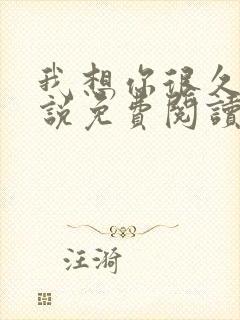 我想你很久
說免費閱讀
汪漪